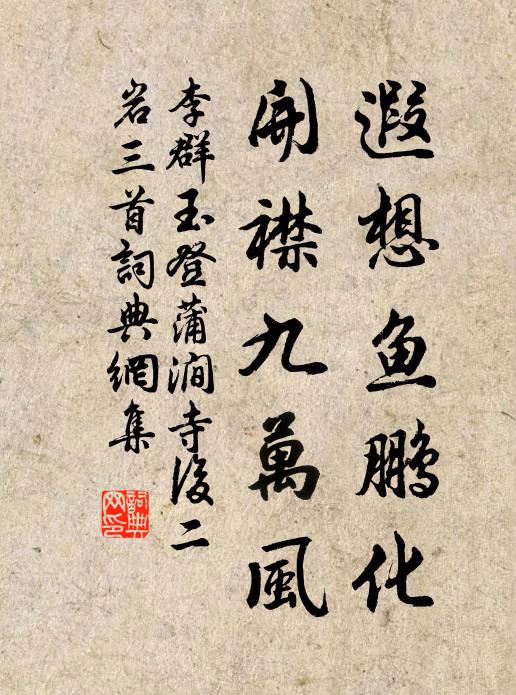 遐想鱼鹏化
開襟九萬風
李群玉登蒲澗寺後二
岩三首詞典網集
詞典网印